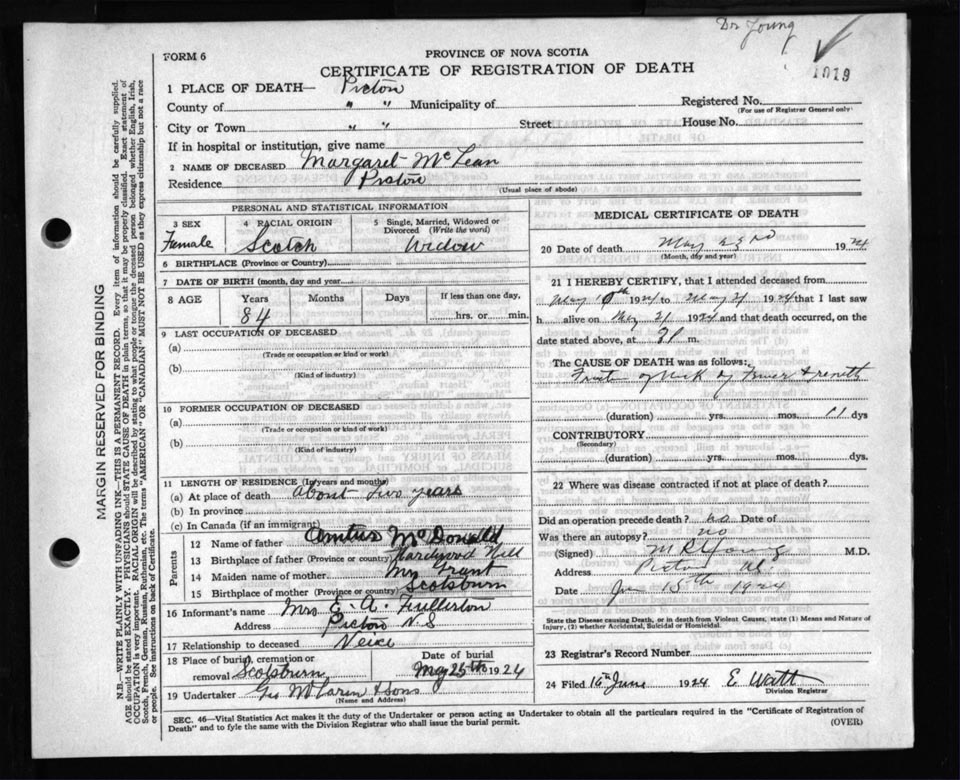 Dr Young
1019
FORM 6
PROVINCE OF NOVA SCOTIA
CERTIFICATE OF REGISTRATION OF DEATH
1 PLACE OF DEATH— Picton
County of " " Municipality of Registered No.
(For use of Registrar General only)
City or Town " " Street House No.
If in hospital or institution, give name
2 NAME OF DECEASED Margaret McLean
Residence Picton
(Usual place of abode)
PERSONAL AND STATISTICAL INFORMATION
3 SEX Female
4 RACIAL ORIGIN Scotch
5 Single, Married, Widowed or Divorced (Write the word) Widow
6 BIRTHPLACE (Province or Country)
7 DATE OF BIRTH (month, day and year)
8 AGE Years Months Days If less than one day,
84 hrs. or min.
9 LAST OCCUPATION OF DECEASED
(a)
(Trade or occupation or kind or work)
(b)
(Kind of industry)
10 FORMER OCCUPATION OF DECEASED
(a)
(Trade or occupation or kind of work)
(b)
(Kind of industry)
11 LENGTH OF RESIDENCE (In years and months)
(a) At place of death About two years
(b) In province
(c) In Canada (if an immigrant)
Parents
12 Name of father McDonald
13 Birthplace of father (Province or country) Hardwood Hill
14 Maiden name of mother Grant
15 Birthplace of mother (Province or country) Scotsburn
16 Informant's name Mrs E. A. Fullerton
Address Picton N S
17 Relationship to deceased Neice
18 Place of burial, cremation or removal Scotsburn
Date of burial May 25th 1924
19 Undertaker Geo & Sons
(Name and Address)
MEDICAL CERTIFICATE OF DEATH
20 Date of death May 23rd 1924
(Month, day and year)
21 I HEREBY CERTIFY, that I attended deceased from
May 1924 to May 21 1924 that I last saw
h alive on May 21 1924 and that death occurred, on the
date stated above, at m.
The CAUSE OF DEATH was as follows:
of neck of
(duration) yrs. mos. 11 dys
CONTRIBUTORY
(Secondary)
(duration) yrs. mos. dys.
22 Where was disease contracted if not at place of death?
Did an operation precede death? no Date of
Was there an autopsy? no
(Signed) M R Young M.D.
Address Picton
Date 15th 1924
State the Disease causing Death, or in death from Violent Causes, state (1) Means and Nature of
Injury, (2) whether Accidental, Suicidal or Homicidal.
23 Registrar's Record Number
24 Filed 16th June 1924 E Watt
Division Registrar
SEC. 46—Vital Statistics Act makes it the duty of the Undertaker or person acting as Undertaker to obtain all the particulars required in the "Certificate of Registration of
Death" and to fyle the same with the Division Registrar who shall issue the burial permit.
(OVER)
MARGIN RESERVED FOR BINDING
N.B.—WRITE PLAINLY WITH UNFADING INK—THIS IS A PERMANENT RECORD. Every item of information should be carefully supplied.
AGE should be stated EXACTLY. PHYSICIANS should STATE CAUSE OF DEATH in plain terms, so that it may be properly classified. Exact statement of
OCCUPATION is very important. RACIAL ORIGIN will be described by stating to what people or tongue the deceased person belonged whether English, Irish,
Scotch, French, German, Russian, Ruthenian, etc. The terms "AMERICAN" OR "CANADIAN" MUST NOT BE USED as they express citizenship but not a race
or people. See instructions on back of Certificate.